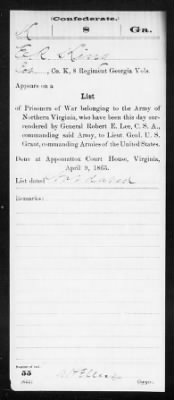 Confederate.
8 Ga.
E. R. King
Co. K, 8 Regiment Georgia Vols.
Appears on a
List
of Prisoners of War belonging to the Army of
Northern Virginia, who have been this day sur-
rendered by General Robert E. Lee, C. S. A.,
commanding said Army, to Lieut. Genl. U. S.
Grant, commanding Armies of the United States.
Done at Appomattox Court House, Virginia,
April 9, 1865.
List dated Not dated
Remarks:
55
Copyist.